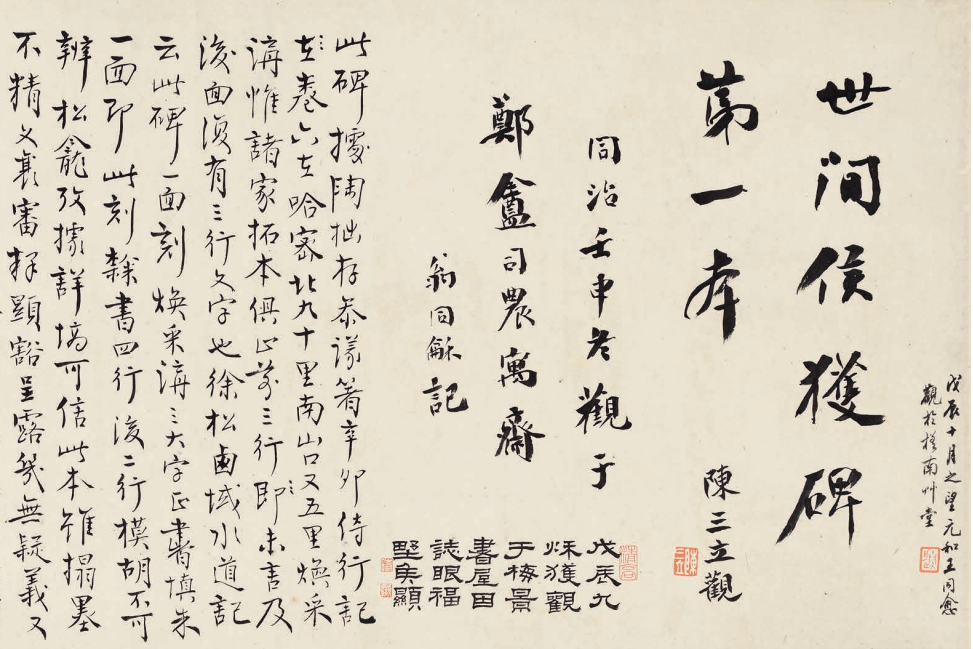 戊辰十月之望元和王同愈
觀於槎南艸堂
世間侯獲碑
第一本
陳三立觀
同治壬申冬觀于
鄭盦司農寓齋
翁同龢記
戊辰九
秌獲觀
于梅景
書屋田
誌眼福
堅矦顯
此碑據陶拙存叅議著辛卯侍行記
在卷六在哈密北九十里南山口又五里煥采
溝惟諸家拓本俱止前三行即未言及
後面復有三行文字也徐松鹵域水道記
云此碑一面刻煥采溝三大字正書填朱
一面即此刻隸書四行後二行模胡不可
辨松龕攷據詳塙可信此本雖搨墨
不精文義審釋顯豁呈露幾無疑義又